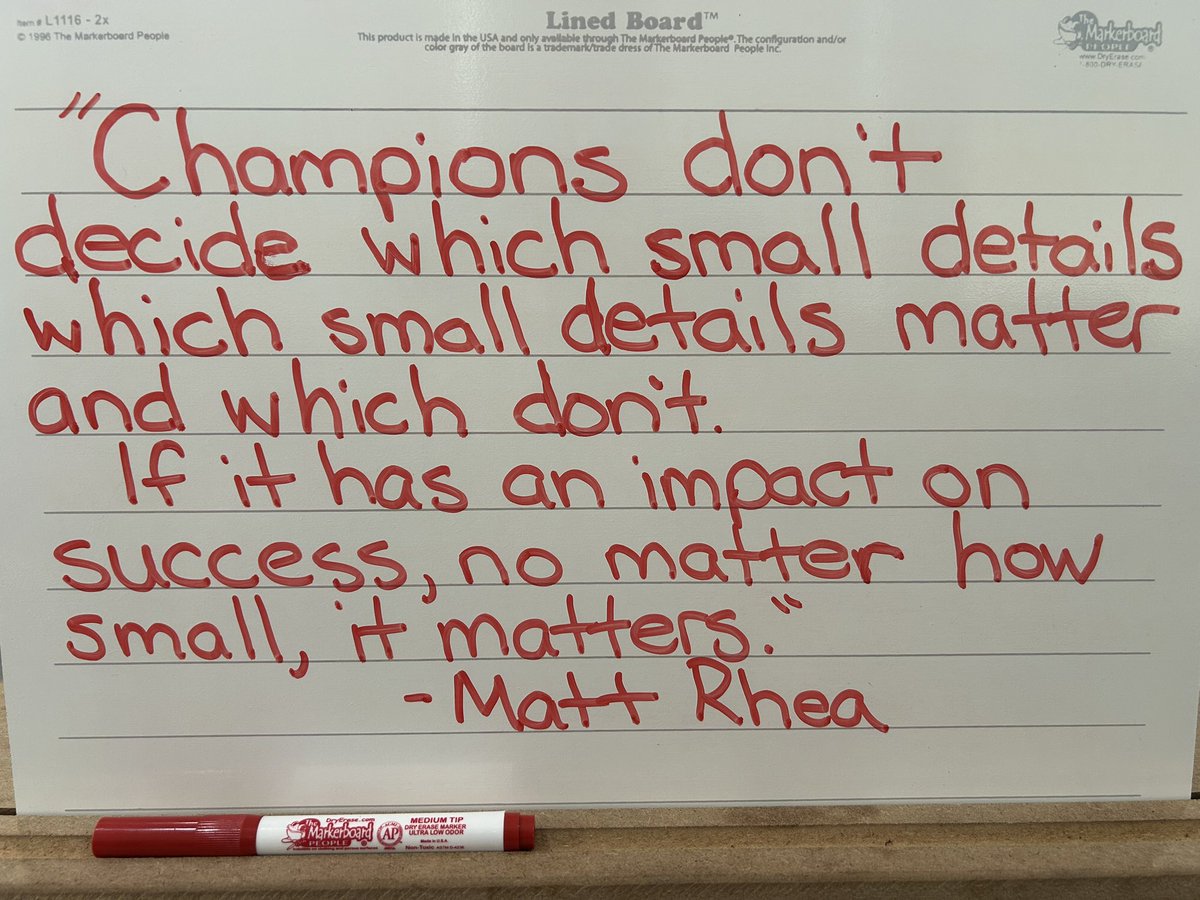 Item # L1116 - 2x
© 1996 The Markerboard People
Lined Board™
This product is made in the USA and only available through The Markerboard People®. The configuration and/or
color gray of the board is a trademark/trade dress of The Markerboard People Inc.
The
Markerboard
PEOPLE
www.DryErase.com
1-800-DRY-ERASE
"Champions don't
decide which small details
which small details matter
and which don't.
If it has an impact on
success, no matter how
small, it matters."
- Matt Rhea
DryErase.com
The
Markerboard
PEOPLE
AP
MEDIUM TIP
DRY ERASE MARKER
ULTRA LOW ODOR
Made in U.S.A.
Non-Toxic ASTM D-4236